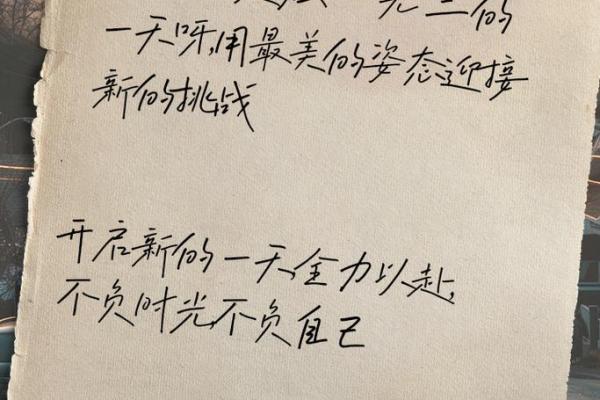 的
一天呀,用最美的姿态迎接
新的挑战
开启新的一天,全力以赴,
不负时光,不负自己